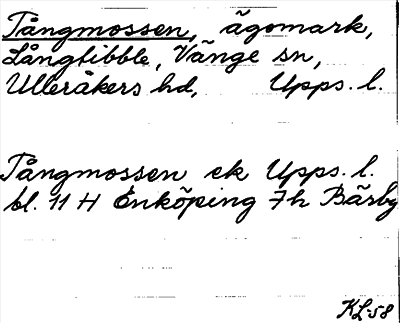 Tångmossen, ägomark,
Långtibble, Vänge sn,
Ulleråkers hd, Upps. l.
Tångmossen ek Upps. l.
bl. 11 H Enköping 7h Bärby
KL-58